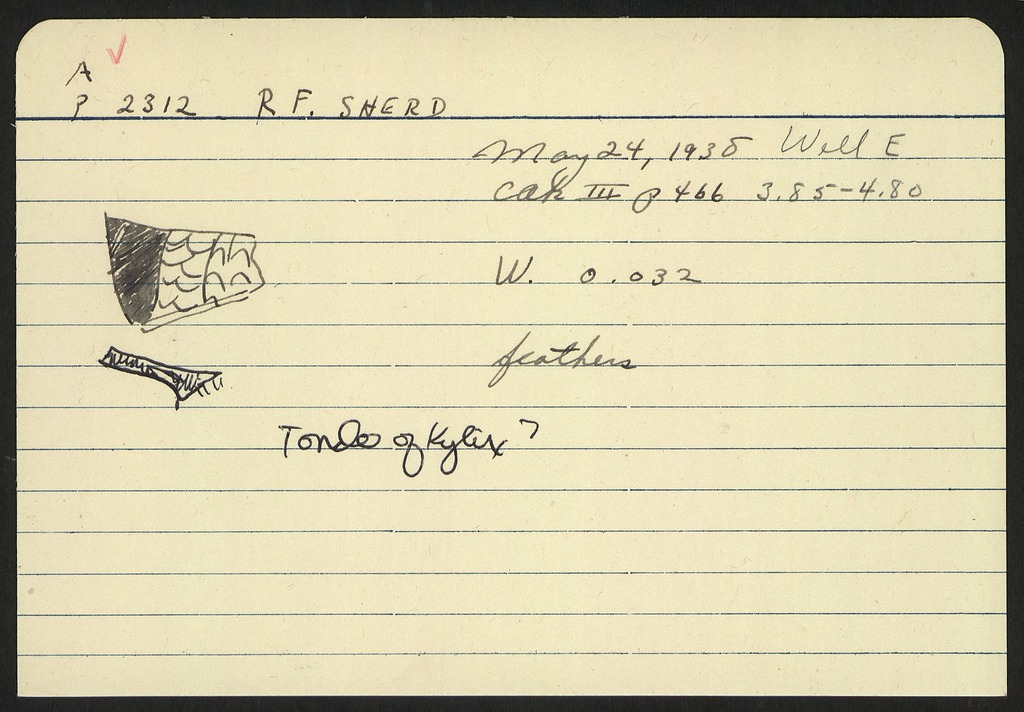 A
P 2312 R F. SHERD
May 24, 1935 Well E
III p 466 3.85-4.80
W. 0.032
feathers
Tondo of Kylix?